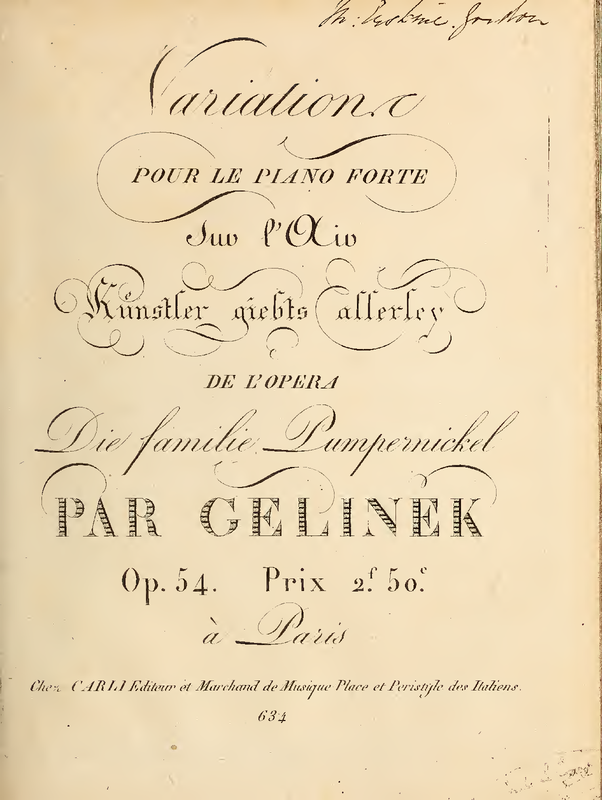 Th: Erskine. Gordon
Variations
POUR LE PIANO FORTE
Sur l'Air
Künstler giebts allerley
DE L'OPERA
Die familie Pumpernickel
PAR GELINEK
Op. 54. Prix 2.f 50.c
à Paris
Chez CARLI Editeur et Marchand de Musique Place et Peristyle des Italiens.
634